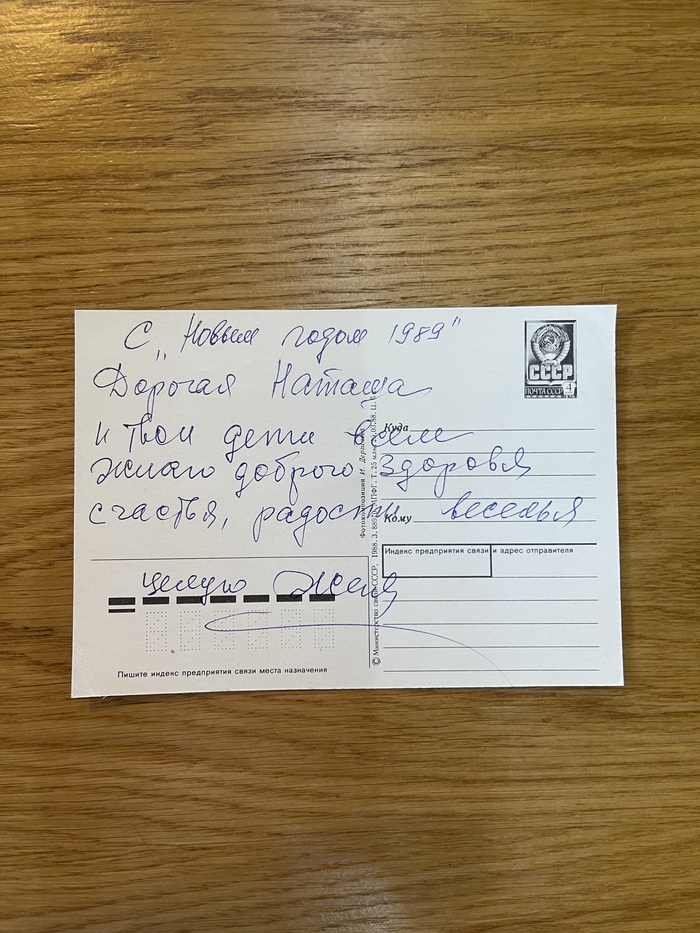 С „Новым годом 1989"
Дорогая Наташа
и твои дети всем
желаю доброго здоровья
счастья, радости веселья
Целую Женя
СССР
4
ПОЧТА СССР
Куда
Кому
Индекс предприятия связи и адрес отправителя
Пишите индекс предприятия связи места назначения
© Министерство связи СССР, 1988. З.